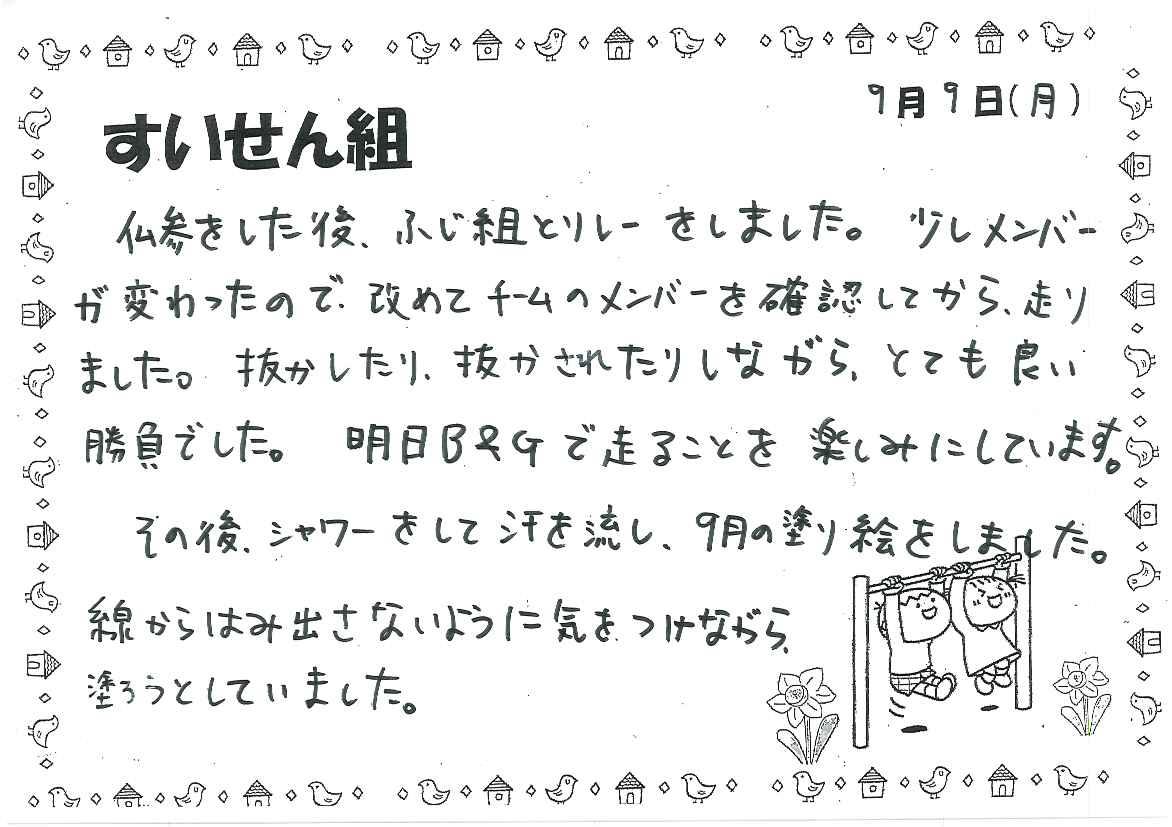 9月9日(月)
すいせん組
仏参をした後、ふじ組とリレーをしました。少しメンバー
が変わったので、改めてチームのメンバーを確認してから、走り
ました。抜かしたり、抜かされたりしながら、とても良い
勝負でした。明日B&Gで走ることを楽しみにしています。
その後、シャワーをして汗を流し、9月の塗り絵をしました。
線からはみ出さないように気をつけながら、
塗ろうとしていました。